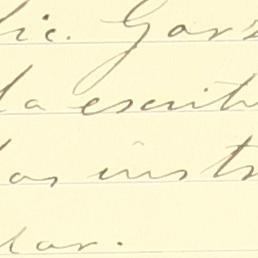 lic. Garz
la escrit
los instr
lar.